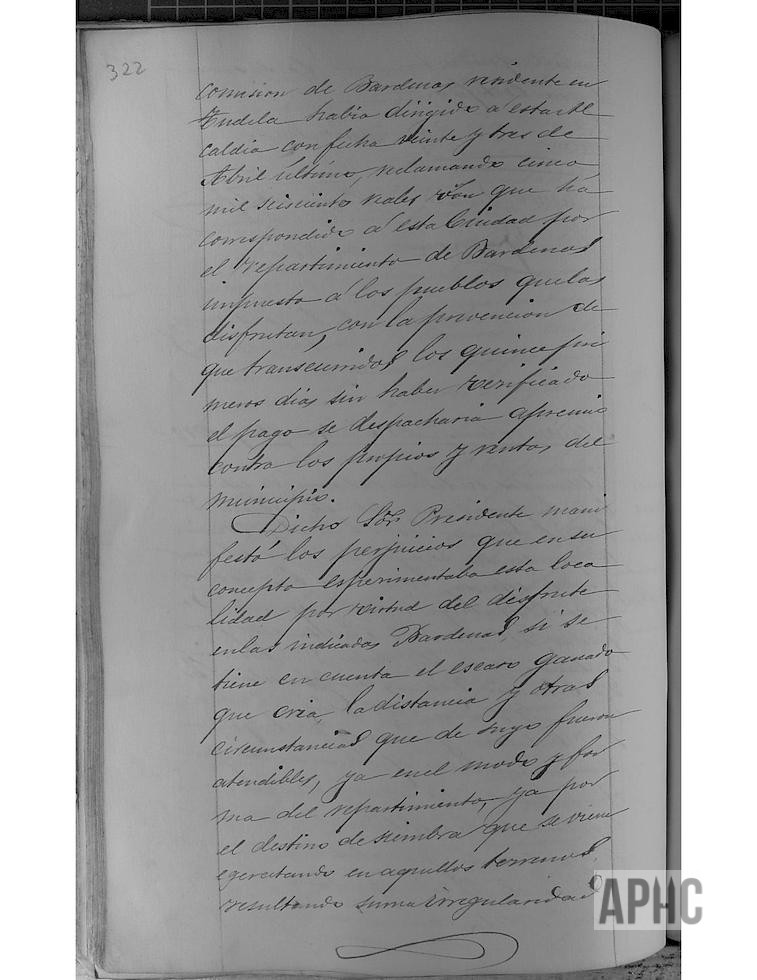 322
comision de Bardenas residente en
Tudela habia dirigido a esta Al
caldia con fecha veinte y tres de
Abril último, reclamando cinco
mil seiscientos reales von que há
correspondido á esta Ciudad por
el repartimiento de Bardenas
impuesto á los pueblos que las
disfrutan, con la prevencion de
que transcurridos los quince pri
meros dias sin haber verificado
el pago se despacharia apremio
contra los propios y rentas del
municipio.
Dicho Sor Presidente mani
festó los perjuicios que en su
concepto esperimentaba esta loca
lidad por virtud del disfrute
en las indicadas Bardenas, si se
tiene en cuenta el escaso ganado
que cria, la distancia y otras
circunstancias que de suyo fueron
atendibles, ya en el modo y for
ma del repartimiento, ya por
el destino de siembra que se viene
egercitando en aquellos terrenos,
resultando suma irregularidad
APHC